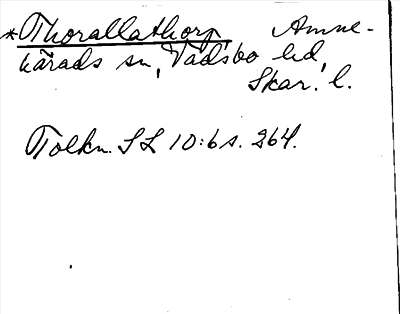 *Thorallathorp, Amne-
härads sn, Vadsbo hd,
Skar. l.
Tolkn. SL 10:6 s. 264.